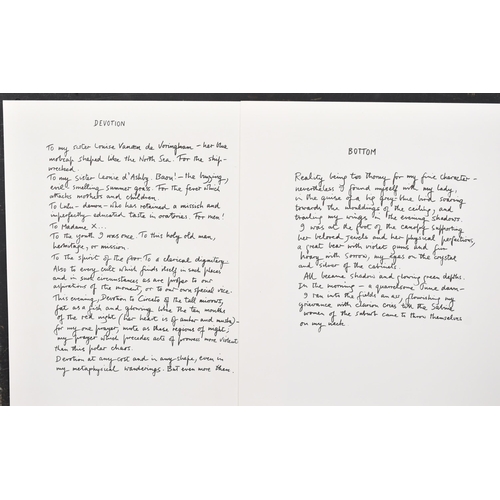 DEVOTION
To my sister Louise Vanaen de Voringhem – her blue
mobcap shaped like the North Sea. For the ship-
wrecked.
To my sister Leonie d'Ashby. Baou! – the buzzing,
evil smelling summer grass. For the fever which
attacks mothers and children.
To Lulu – demon – who has retained a
imperfectly-educated taste in oratories. For men!
To Madame X...
To the youth I was once. To this holy old man,
hermitage, or mission.
To the spirit of the poor. To a clerical dignitary
Also to every cult which finds itself in such places
and in such circumstances as are proper to our
aspirations of the moment, or to our own special vice.
This evening, Devotion to Circeto of the tall mirrors,
fat as a fish and glowing like the ten months
of the red night (her heart is of amber and musk) –
for my one prayer, mute as those regions of night,
my prayer which precedes acts of prowess more violent
than this polar chaos.
Devotion at any cost and in any shape, even in
my metaphysical wanderings. But even more then.
BOTTOM
Reality being too thorny for my fine character –
nevertheless I found myself with my lady,
in the guise of a big grey-blue bird soaring
towards the mouldings of the ceiling, and
trailing my wings in the evening shadows.
I was at the foot of the canopy supporting
her beloved jewels and her physical perfections,
a great bear with violet gums and fur
hoary with sorrow, my eyes on the crystal
and silver of the cabinets.
All became shadow and glowing green depths.
In the morning – a quarrelsome June dawn –
I ran into the fields an ass, flourishing my
grievance with clarion cries till the Sabine
women of the suburb came to throw themselves
on my neck.